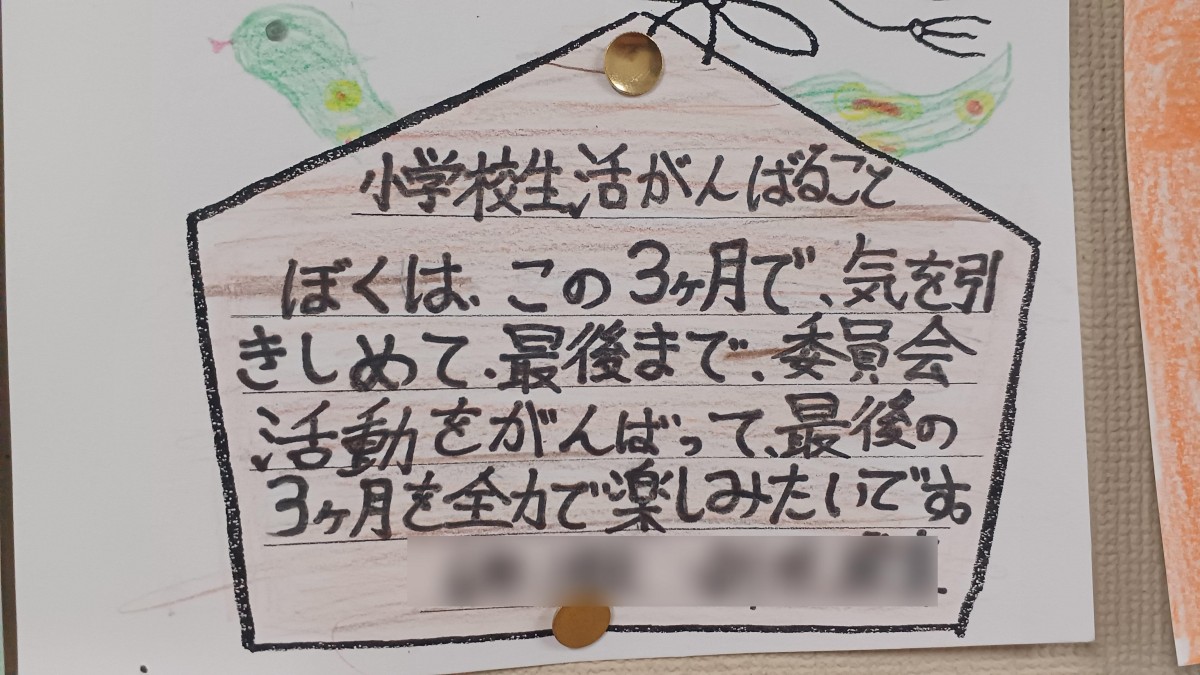 小学校生活がんばること
ぼくは、この3ヶ月で、気を引
きしめて、最後まで、委員会
活動をがんばって、最後の
3ヶ月を全力で楽しみたいです。